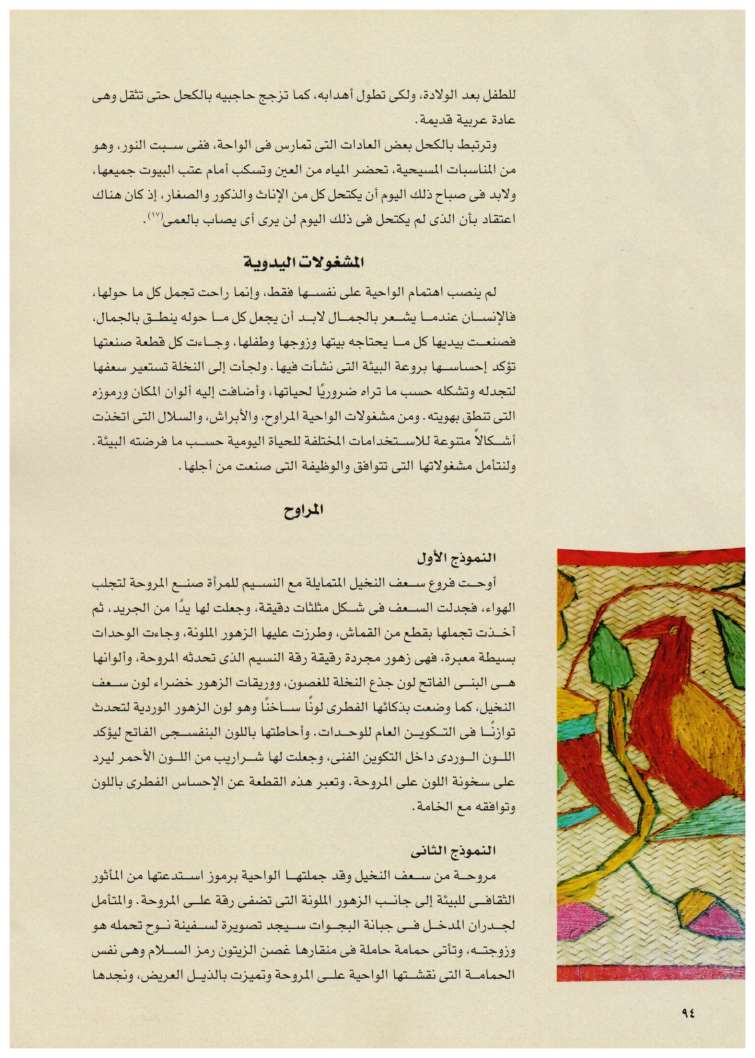 للطفل بعد الولادة، ولكى تطول أهدابه، كما تزجج حاجبيه بالكحل حتى تثقل وهى
عادة عربية قديمة.
وترتبط بالكحل بعض العادات التى تمارس فى الواحة، ففى سبت النور، وهو
من المناسبات المسيحية، تحضر المياه من العين وتسكب أمام عتب البيوت جميعها،
ولابد فى صباح ذلك اليوم أن يكتحل كل من الإناث والذكور والصغار، إذ كان هناك
اعتقاد بأن الذى لم يكتحل فى ذلك اليوم لن يرى أى يصاب بالعمى(١٧).
المشغولات اليدوية
لم ينصب اهتمام الواحية على نفسها فقط، وإنما راحت تجمل كل ما حولها،
فالإنسان عندما يشعر بالجمال لابد أن يجعل كل ما حوله ينطق بالجمال،
فصنعت بيديها كل ما يحتاجه بيتها وزوجها وطفلها، وجاءت كل قطعة صنعتها
تؤكد إحساسها بروعة البيئة التى نشأت فيها. ولجأت إلى النخلة تستعير سعفها
لتجدله وتشكله حسب ما تراه ضروريًا لحياتها، وأضافت إليه ألوان المكان ورموزه
التى تنطق بهويته. ومن مشغولات الواحية المراوح، والأبراش، والسلال التى اتخذت
أشكالاً متنوعة للاستخدامات المختلفة للحياة اليومية حسب ما فرضته البيئة.
ولنتأمل مشغولاتها التى تتوافق والوظيفة التى صنعت من أجلها.
المراوح
النموذج الأول
أوحت فروع سعف النخيل المتمايلة مع النسيم للمرأة صنع المروحة لتجلب
الهواء، فجدلت السعف فى شكل مثلثات دقيقة، وجعلت لها يدًا من الجريد، ثم
أخذت تجملها بقطع من القماش، وطرزت عليها الزهور الملونة، وجاءت الوحدات
بسيطة معبرة، فهى زهور مجردة رقيقة رقة النسيم الذى تحدثه المروحة، وألوانها
هى البنى الفاتح لون جذع النخلة للغصون، ووريقات الزهور خضراء لون سعف
النخيل، كما وضعت بذكائها الفطرى لونًا ساخنًا وهو لون الزهور الوردية لتحدث
توازنًا فى التكوين العام للوحدات. وأحاطتها باللون البنفسجى الفاتح ليؤكد
اللون الوردى داخل التكوين الفنى، وجعلت لها شراريب من اللون الأحمر ليرد
على سخونة اللون على المروحة. وتعبر هذه القطعة عن الإحساس الفطرى باللون
وتوافقه مع الخامة.
النموذج الثانى
مروحة من سعف النخيل وقد جملتها الواحية برموز استدعتها من المأثور
الثقافى للبيئة إلى جانب الزهور الملونة التى تضفى رقة على المروحة. والمتأمل
لجدران المدخل فى جبانة البجوات سيجد تصويرة لسفينة نوح تحمله هو
وزوجته، وتأتى حمامة حاملة فى منقارها غصن الزيتون رمز السلام وهى نفس
الحمامة التى نقشتها الواحية على المروحة وتميزت بالذيل العريض، ونجدها
٩٤